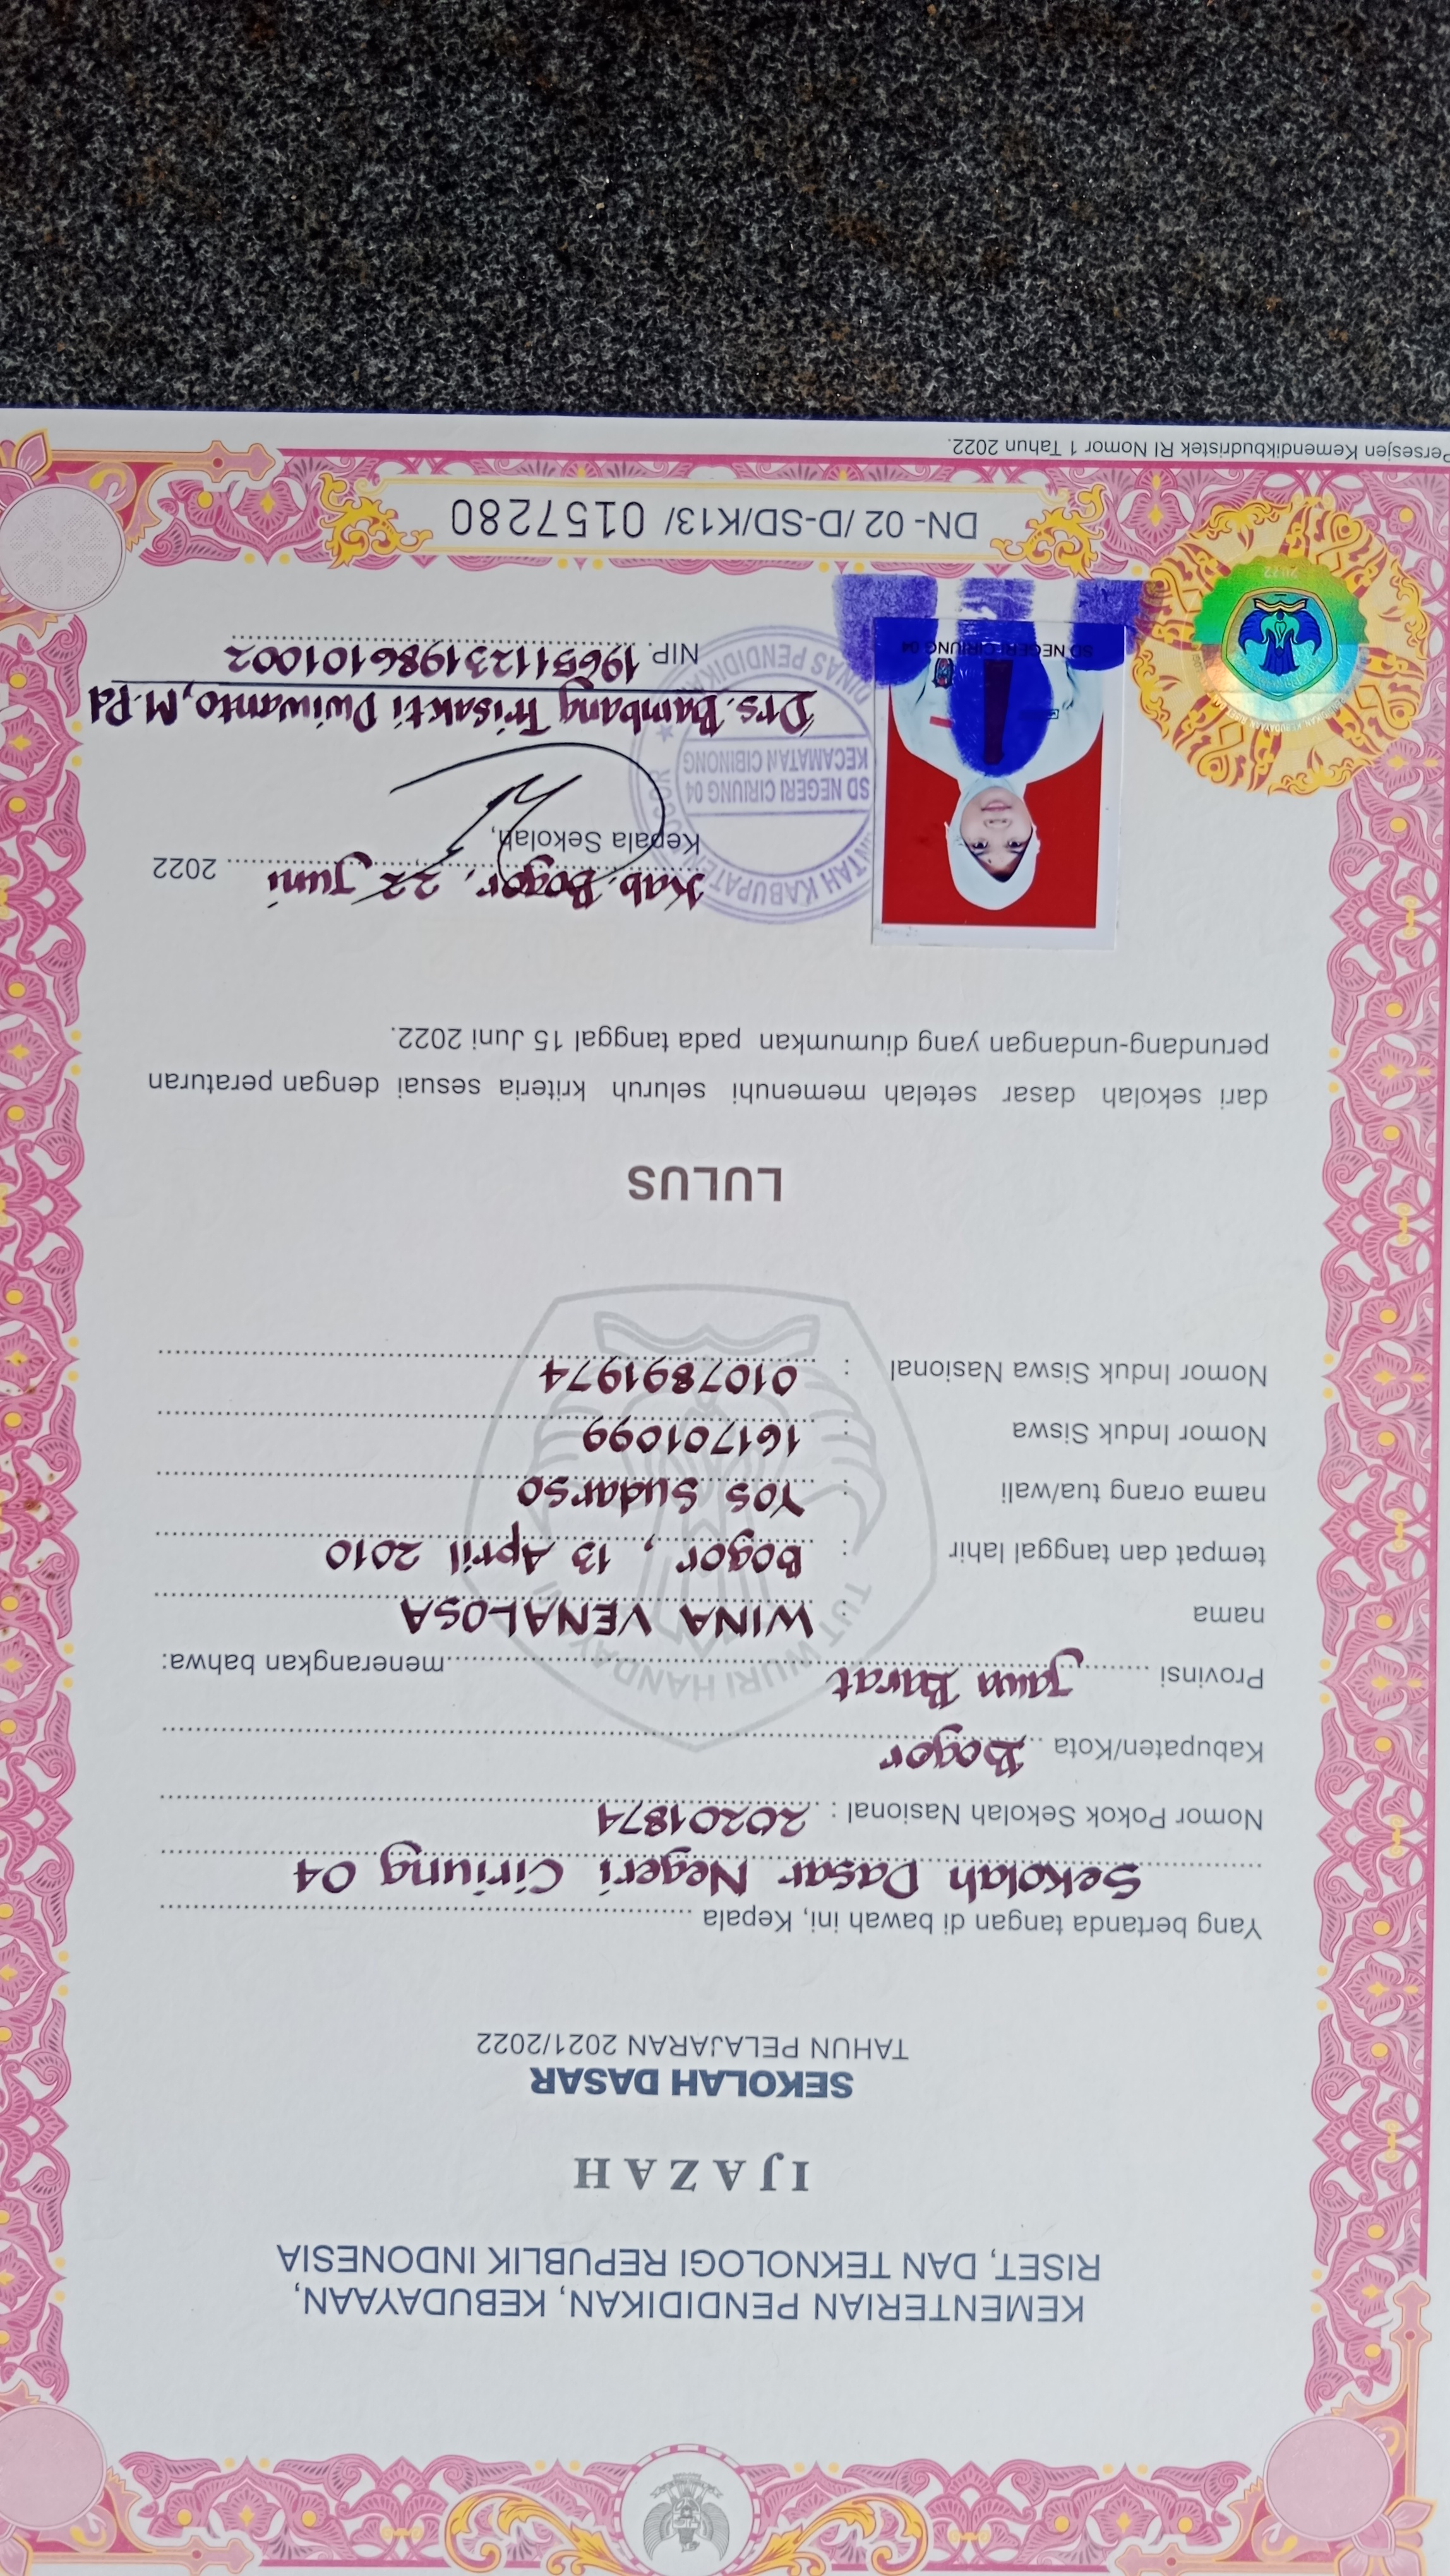 KEMENTERIAN PENDIDIKAN, KEBUDAYAAN,
RISET, DAN TEKNOLOGI REPUBLIK INDONESIA
IJAZAH
SEKOLAH DASAR
TAHUN PELAJARAN 2021/2022
Yang bertanda tangan di bawah ini, Kepala
Sekolah Dasar Negeri Ciriung 04
Nomor Pokok Sekolah Nasional : 20201874
Kabupaten/Kota Bogor
Provinsi Jawa Barat menerangkan bahwa:
nama : WINA VENALOSA
tempat dan tanggal lahir : Bogor, 13 April 2010
nama orang tua/wali : Yos Sudarso
Nomor Induk Siswa : 161701099
Nomor Induk Siswa Nasional : 0107891974
TUT WURI HANDAYANI
LULUS
dari sekolah dasar setelah memenuhi seluruh kriteria sesuai dengan peraturan
perundang-undangan yang diumumkan pada tanggal 15 Juni 2022.
Kab. Bogor, 22 Juni 2022
Kepala Sekolah,
SD NEGERI CIRIUNG 04
KECAMATAN CIBINONG
DINAS PENDIDIKAN
Drs. Bambang Trisakti Dwiwanto, M.Pd
NIP. 196511231986101002
SD NEGERI CIRIUNG 04
2022
DN- 02 /D-SD/K13/ 0157280
Persesjen Kemendikbudristek RI Nomor 1 Tahun 2022.